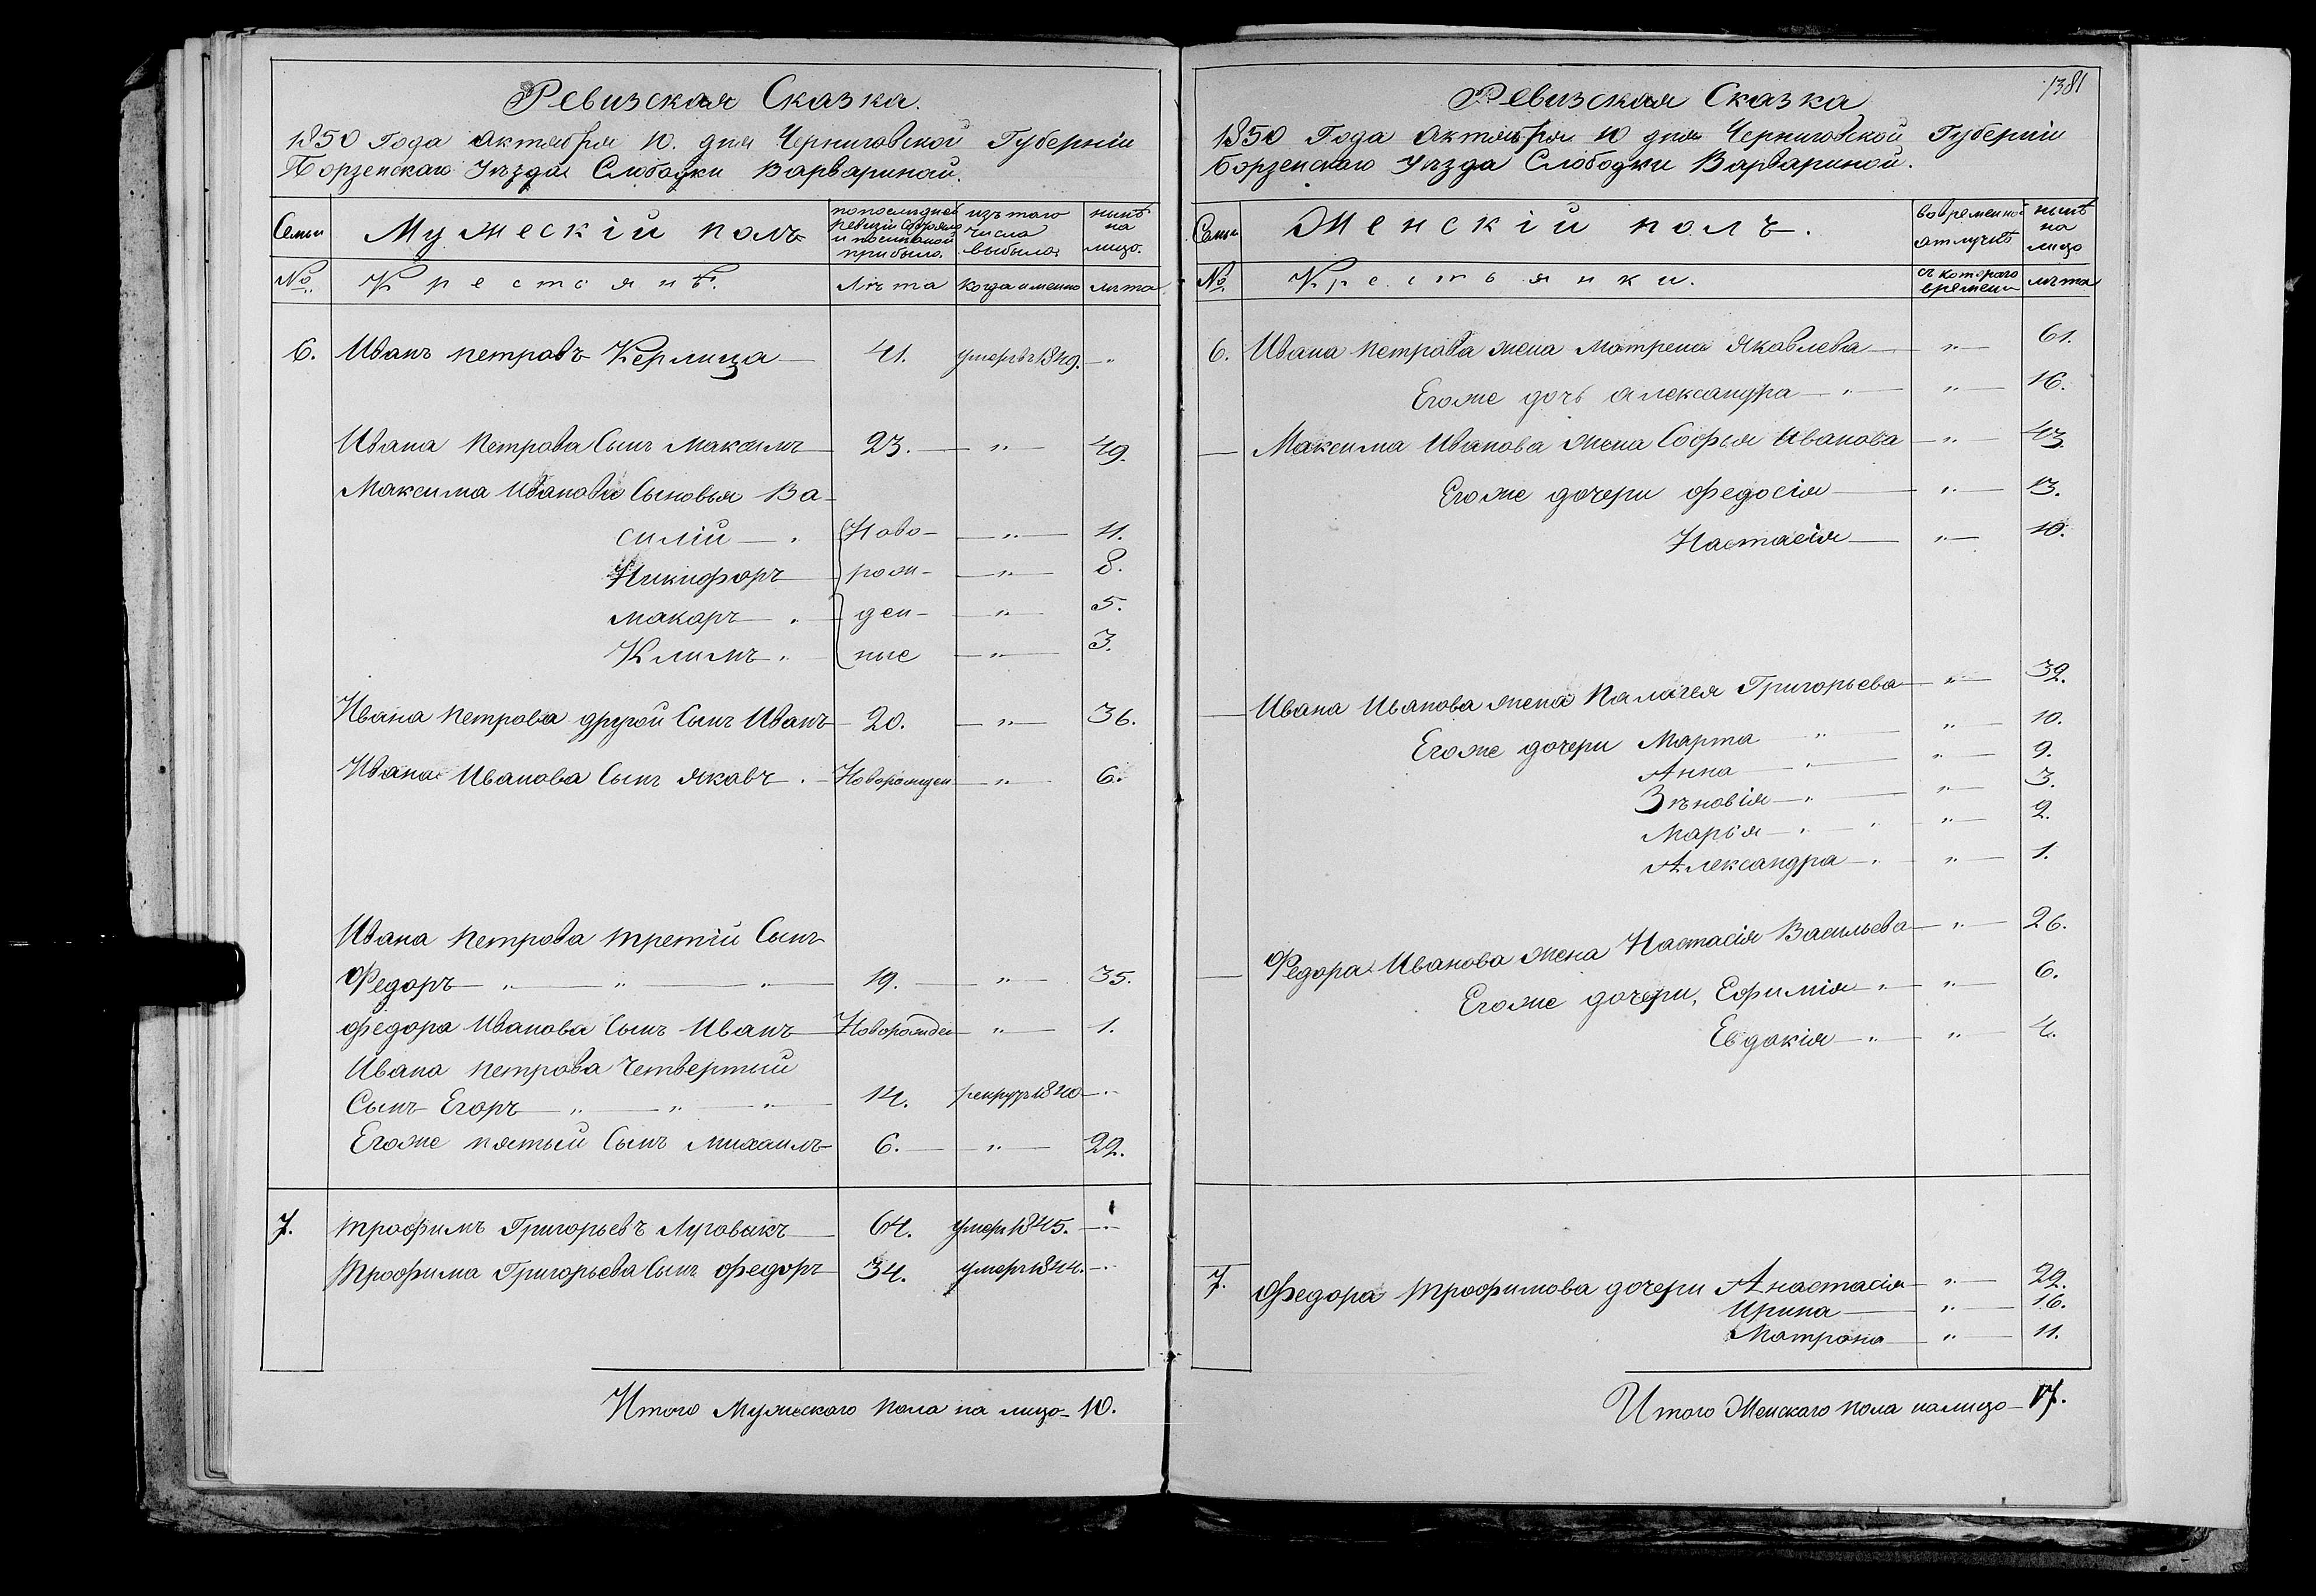 Ревизская Сказка.
1850 Года Актября 10. дня Черниговской Губерніи
Борзенскаго Уѣзда Слободки Варвариной.
Семьи
Мужескій полъ
по последней ревизіи состояло и после оной прибыло.
изъ того числа выбыло
нынѣ на лицо.
№
Крестьянѣ.
Лѣта
когда именно
лѣта
6. Иванъ петровъ Керлица 41. умеръ 1849. "
Ивана Петрова Сынъ Максимъ 23. " 49.
Максима Иванова Сыновья Ва-
силій " Ново- " 11.
Никифоръ рож- " 8.
Макаръ " ден- " 5.
Климъ " ные " 3.
Ивана Петрова другой Сынъ Иванъ 20. " 36.
Ивана Иванова Сынъ Яковъ Новорожден " 6.
Ивана Петрова третій Сынъ
Федоръ " " " 19. " 35.
Федора Иванова Сынъ Иванъ Новорожден " 1.
Ивана Петрова Четвертый
Сынъ Егоръ " " " 14. рекрутъ 1840 "
Егоже пятый Сынъ Михаилъ 6. " 22.
7. Трофимъ Григорьевъ Луговикъ 64. умеръ 1845. "
Трофима Григорьева Сынъ Федоръ 34. умеръ 1844. "
Итого Мужескаго пола на лицо 10.
1381
Ревизская Сказка
1850 Года Актября 10 дня Черниговской Губерніи
Борзенскаго Уѣзда Слободки Варвариной.
Семьи
Женскій полъ.
во временной отлучкѣ
нынѣ на лицо
№
Крестьянки.
съ котораго времени
лѣта
6. Ивана Петрова жена Матрена Яковлева " 61.
Егоже дочь Александра " " 16.
Максима Иванова жена Софья Иванова " 43.
Егоже дочери Федосія " 13.
Настасія " 10.
Ивана Иванова жена Палагея Григорьева " 32.
Егоже дочери Марта " " 10.
Анна " " 9.
Зѣновія " " 3.
Марья " " " 2.
Александра " " 1.
Федора Иванова жена Настасія Васильева " 26.
Егоже дочери, Ефимія " " 6.
Евдокія " " 4.
7. Федора Трофимова дочери Анастасія " 22.
Ирина " 16.
Матрона " 11.
Итого Женскаго пола налицо 17.